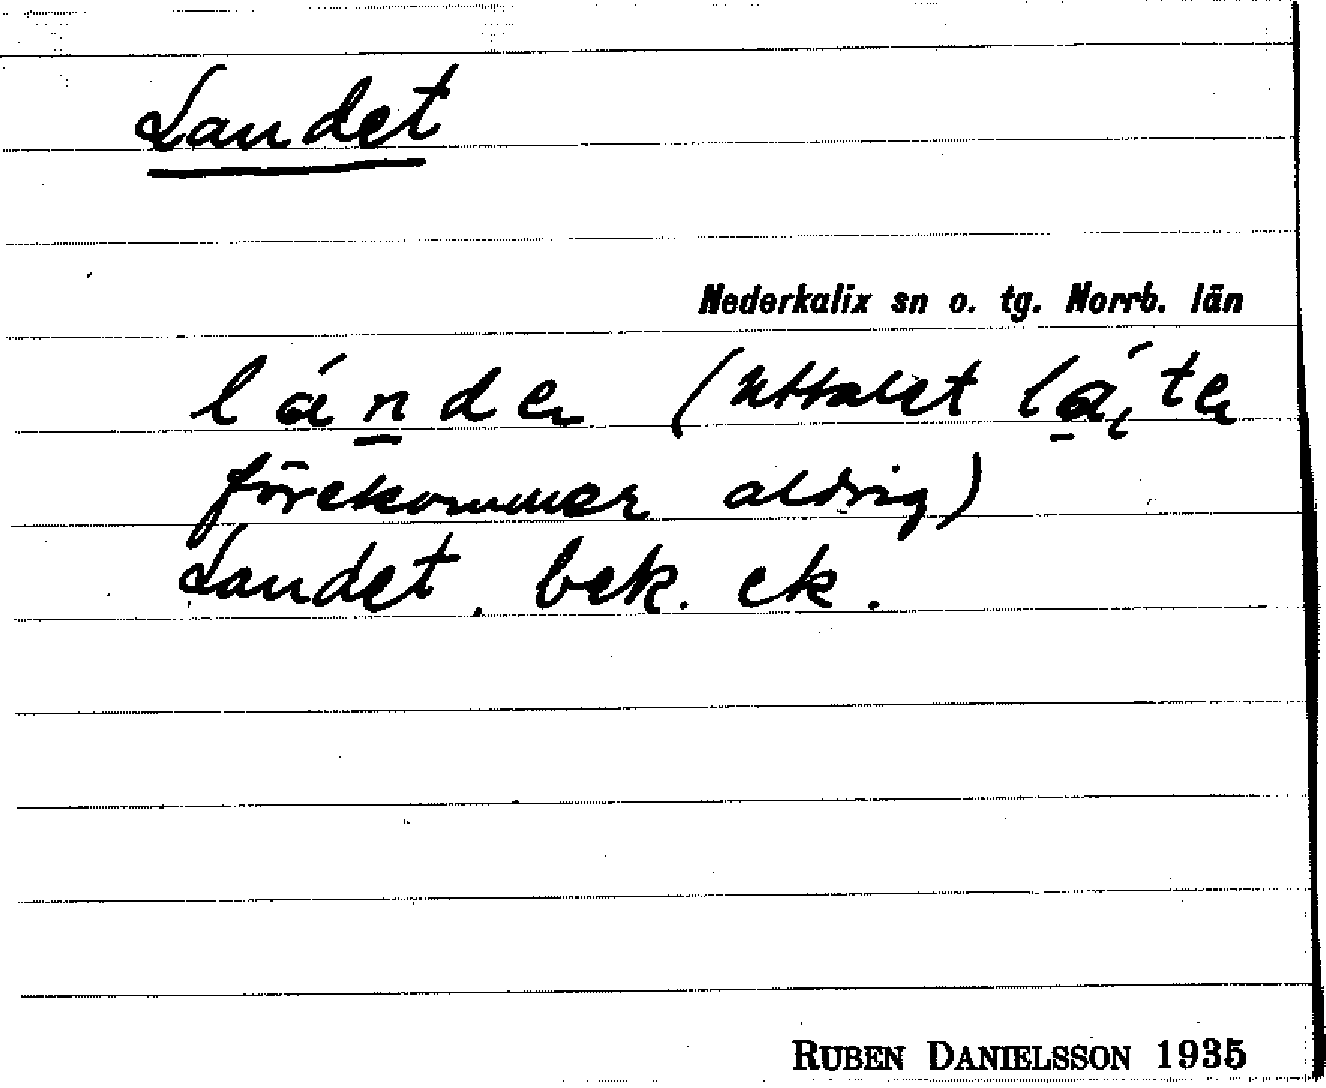 Landet
Nederkalix sn o. tg. Norrb. län
(uttalet
förekommer aldrig)
Landet. bek. ek.
RUBEN DANIELSSON 1935